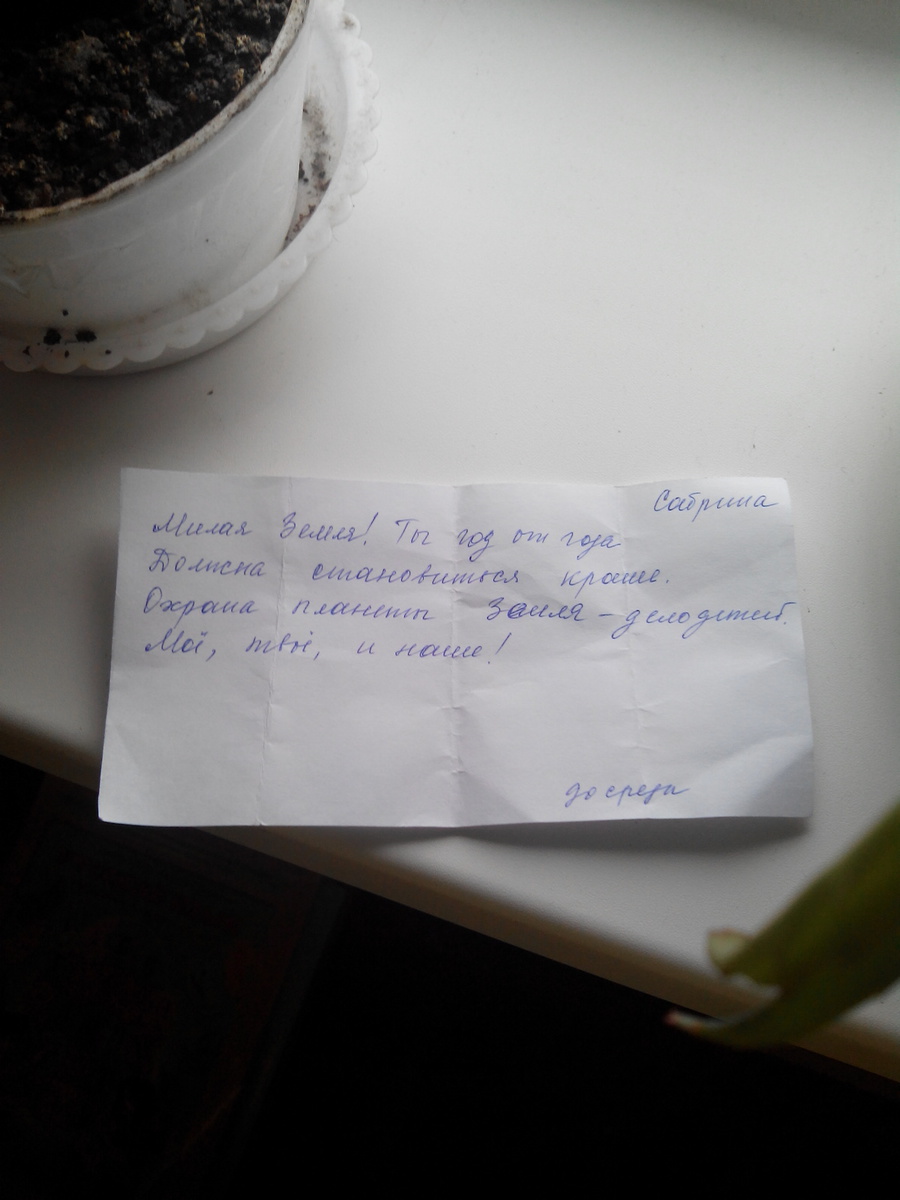 Сабрина
Милая Земля! Ты год от года
Должна становиться краше.
Охрана планеты Земля – дело детей.
Моё, твоё, и наше!
до среды